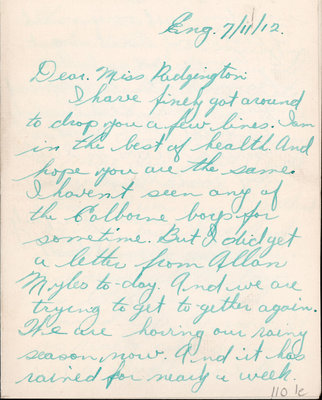 Eng. 7/11/12.
Dear. Miss Padgington
I have finely got around
to drop you a few lines. I am
in the best of health. And
hope you are the same.
I havent seen any of
the Colborne boys for
sometime. But I did get
a letter from Allan
Myles to-day. And we are
trying to get to-gether again.
We are having our rainy
season, now. And it has
rained for nearly a week.
110 1c